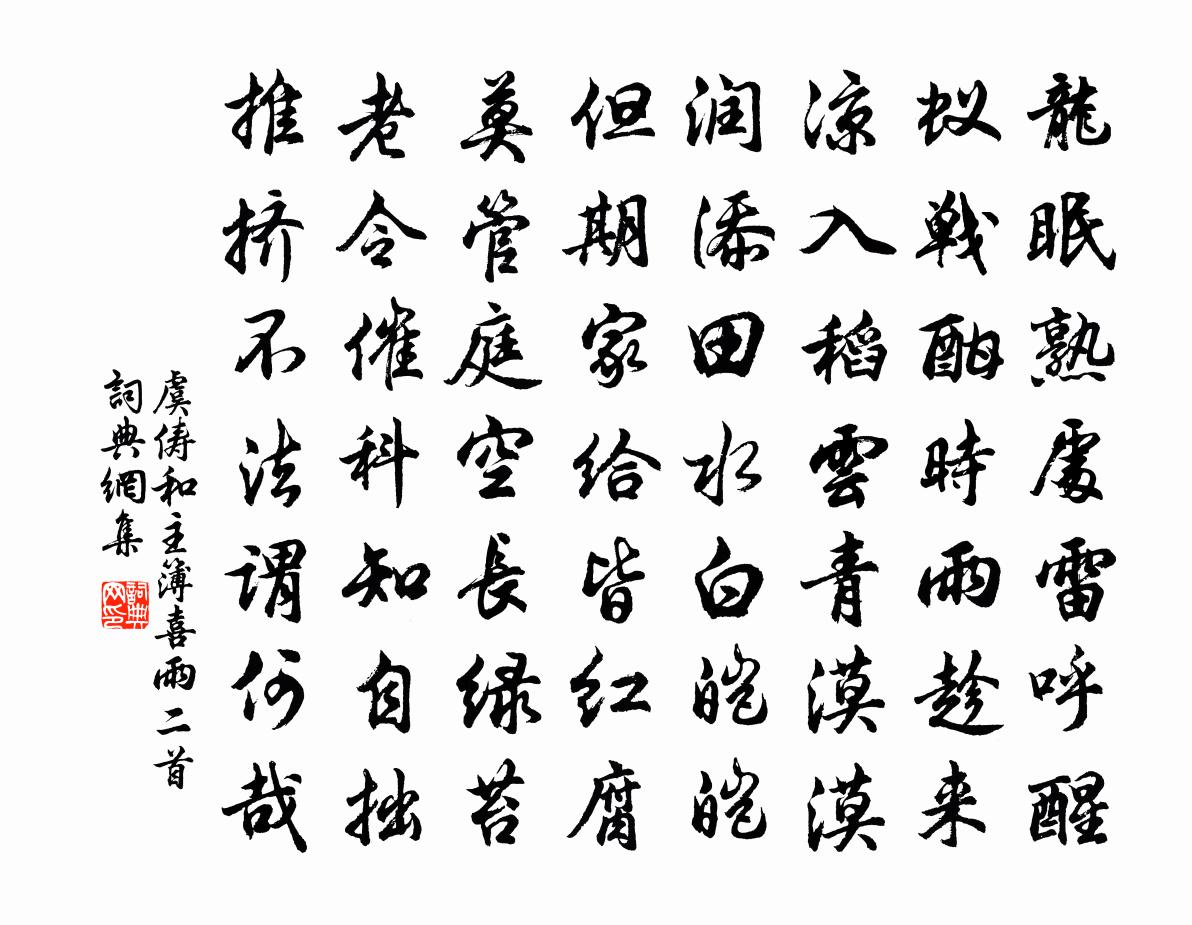 龍眠熟處雷呼醒
蚁戰酣時雨趁来
凉入稻雲青漠漠
润添田水白皑皑
但期家给皆红腐
莫管庭空長绿苔
老令催科知自拙
推挤不法謂何哉
虞俦和主簿喜雨二首
詞典網集
詞典网印